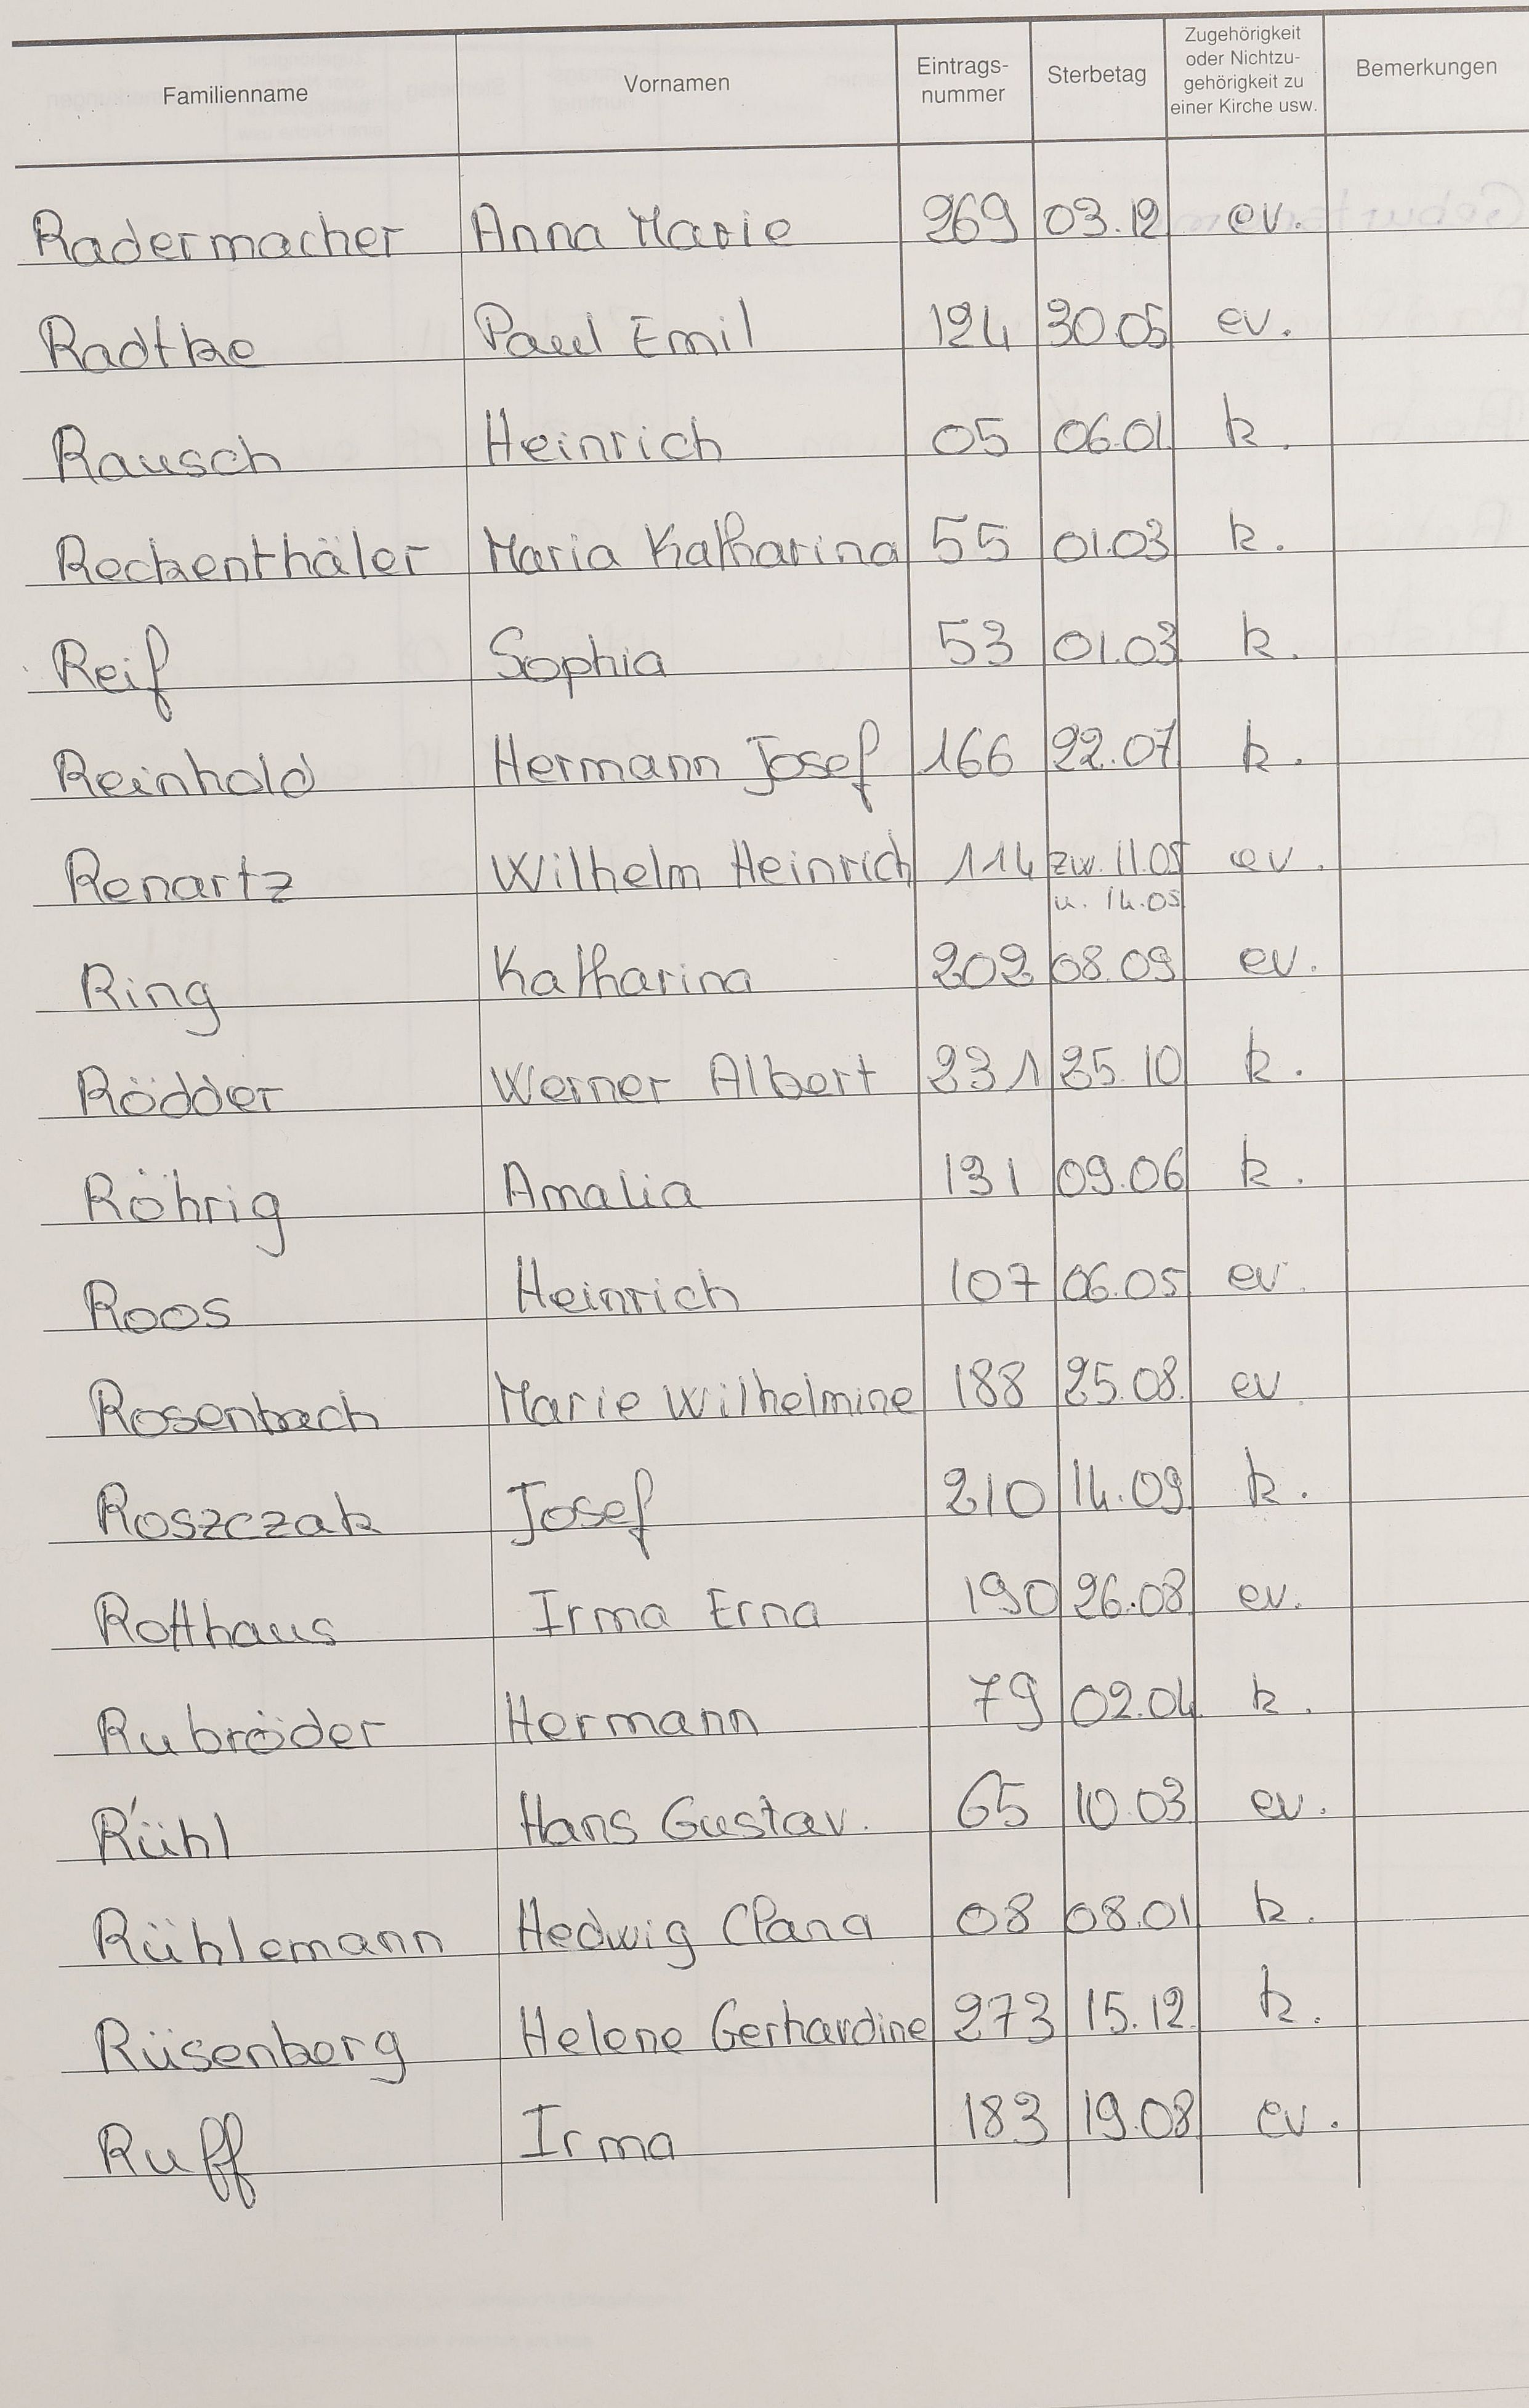 Familienname Vornamen Eintrags-nummer Sterbetag Zugehörigkeit oder Nichtzu-gehörigkeit zu einer Kirche usw. Bemerkungen
Radermacher Anna Marie 269 03.12 ev.
Radtke Paul Emil 124 30.05 ev.
Rausch Heinrich 05 06.01 k.
Reckenthäler Maria Katharina 55 01.03 k.
Reif Sophia 53 01.03 k.
Reinhold Hermann Josef 166 22.07 k.
Renartz Wilhelm Heinrich 114 zw. 11.05 ev.
u. 14.05
Ring Katharina 202 08.09 ev.
Rödder Werner Albert 231 25.10 k.
Röhrig Amalia 131 09.06 k.
Roos Heinrich 107 06.05 ev.
Rosenbach Marie Wilhelmine 188 25.08. ev.
Roszczak Josef 210 14.09. k.
Rotthaus Irma Erna 190 26.08. ev.
Rubröder Hermann 79 02.04. k.
Rühl Hans Gustav. 65 10.03. ev.
Rühlemann Hedwig Clara 08 08.01 k.
Rüsenberg Helene Gerhardine 273 15.12. k.
Ruff Irma 183 19.08 ev.